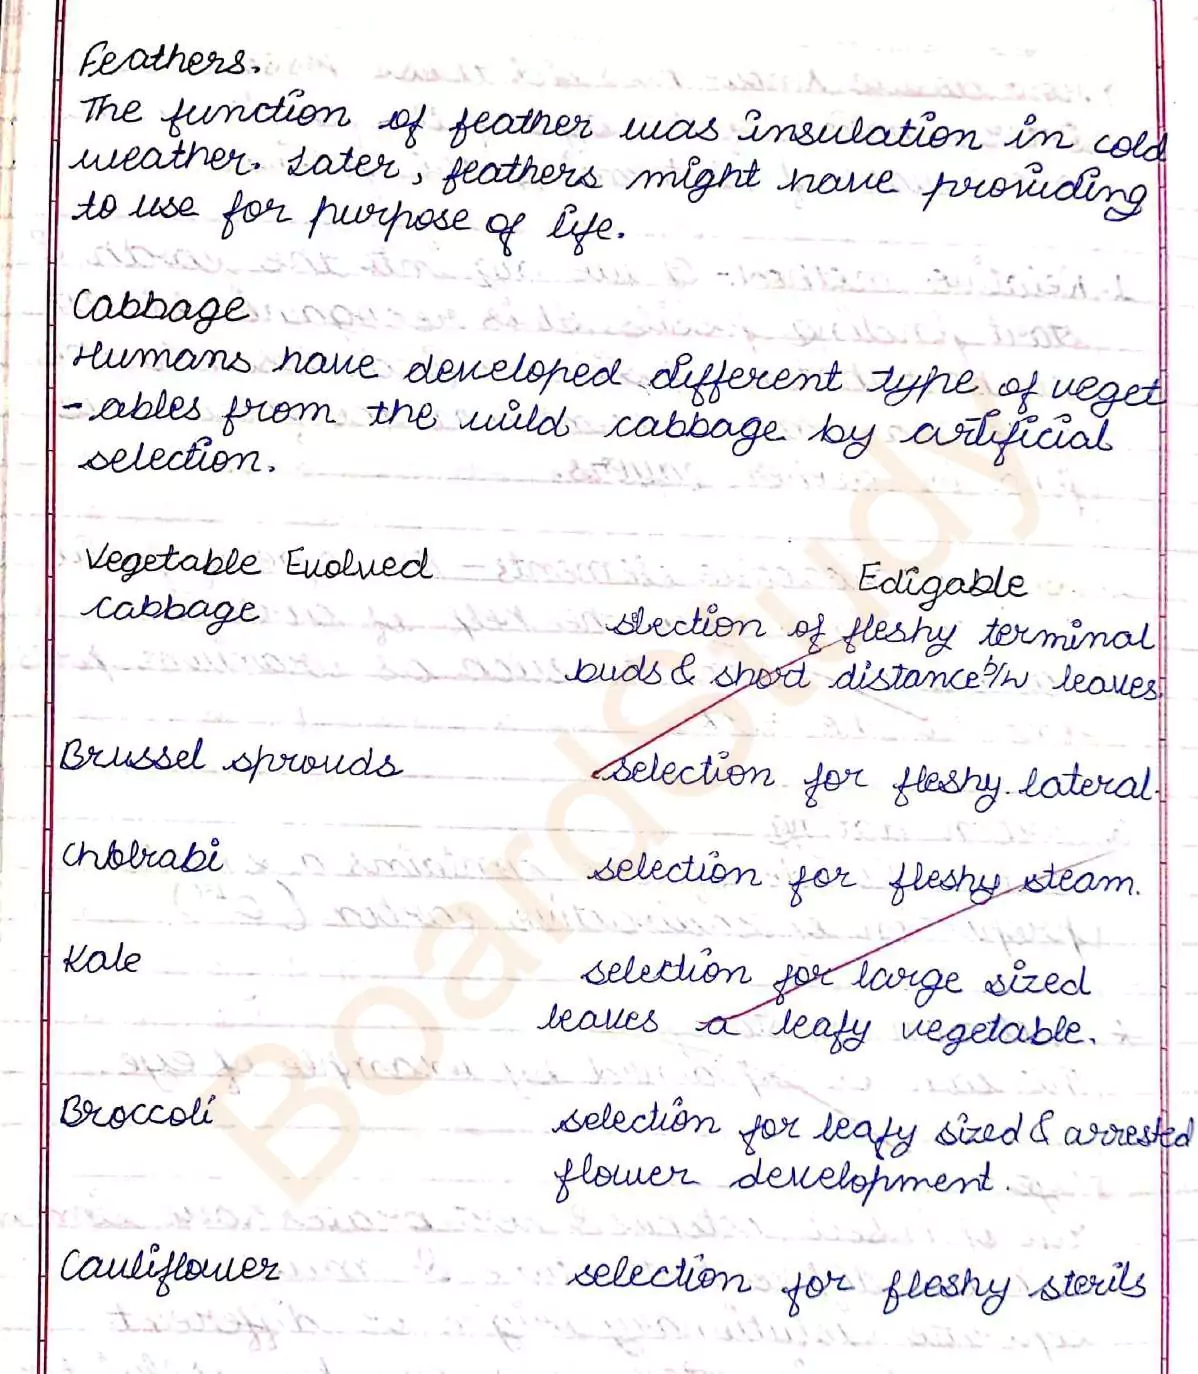 Feathers.
The function of feather was insulation in cold
weather. Later, feathers might have providing
to use for purpose of life.
Cabbage
Humans have developed different type of veget
-ables from the wild cabbage by artificial
selection.
Vegetable Evolved Edigable
cabbage slection of fleshy terminal
buds & short distance b/w leaves.
Brussel sprouds selection for fleshy lateral.
Cholrabi selection for fleshy steam.
Kale selection for large sized
leaves a leafy vegetable.
Broccoli selection for leafy sized & arrested
flower development.
Cauliflower selection for fleshy sterils
BoardStudy